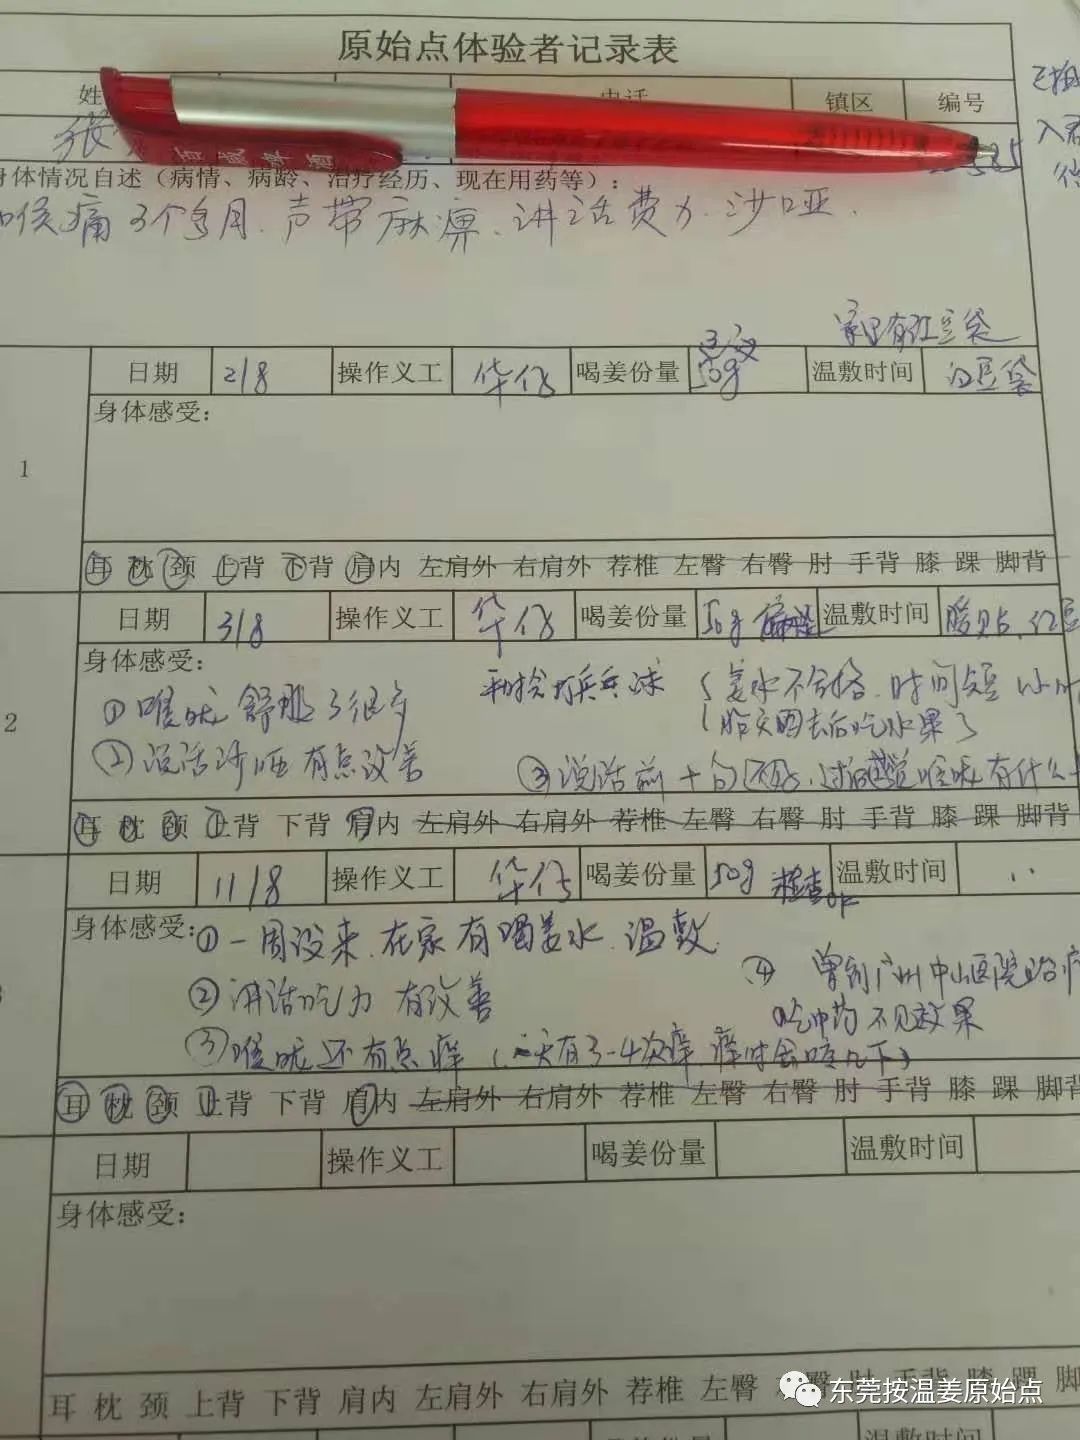 原始点体验者记录表
姓 电话 镇区 编号
张
百威啤酒
身体情况自述（病情、病龄、治疗经历、现在用药等）：
喉痛3个多月.声带麻痹、讲话费力.沙哑.
家里有红豆袋
日期 2/8 操作义工 华仔 喝姜份量 50g 温敷时间 白豆袋
身体感受：
1
耳 枕 颈 上背 下背 肩内 左肩外 右肩外 荐椎 左臀 右臀 肘 手背 膝 踝 脚背
日期 3/8 操作义工 华仔 喝姜份量 50g 温敷时间 暖贴、红豆
身体感受：
2
①喉咙舒服了很多
平时会打乒乓球
姜水不合格.时间短
昨天回去后吃水果了
②说话沙哑有点改善
③说话前十句还好.过后感觉喉咙有什么
耳 枕 颈 上背 下背 肩内 左肩外 右肩外 荐椎 左臀 右臀 肘 手背 膝 踝 脚背
日期 11/8 操作义工 华仔 喝姜份量 50g 检查ok 温敷时间
身体感受：①一周没来.在家有喝姜水.温敷.
②讲话吃力有改善
④曾到广州中山医院治疗
吃中药不见效果
③喉咙还有点痒（一天有3-4次痒.痒时会咳几下）
耳 枕 颈 上背 下背 肩内 左肩外 右肩外 荐椎 左臀 右臀 肘 手背 膝 踝 脚背
日期 操作义工 喝姜份量 温敷时间
身体感受：
耳 枕 颈 上背 下背 肩内 左肩外 右肩外 荐椎 左臀 肘 手背 膝 踝 脚
东莞按温姜原始点
温敷时间